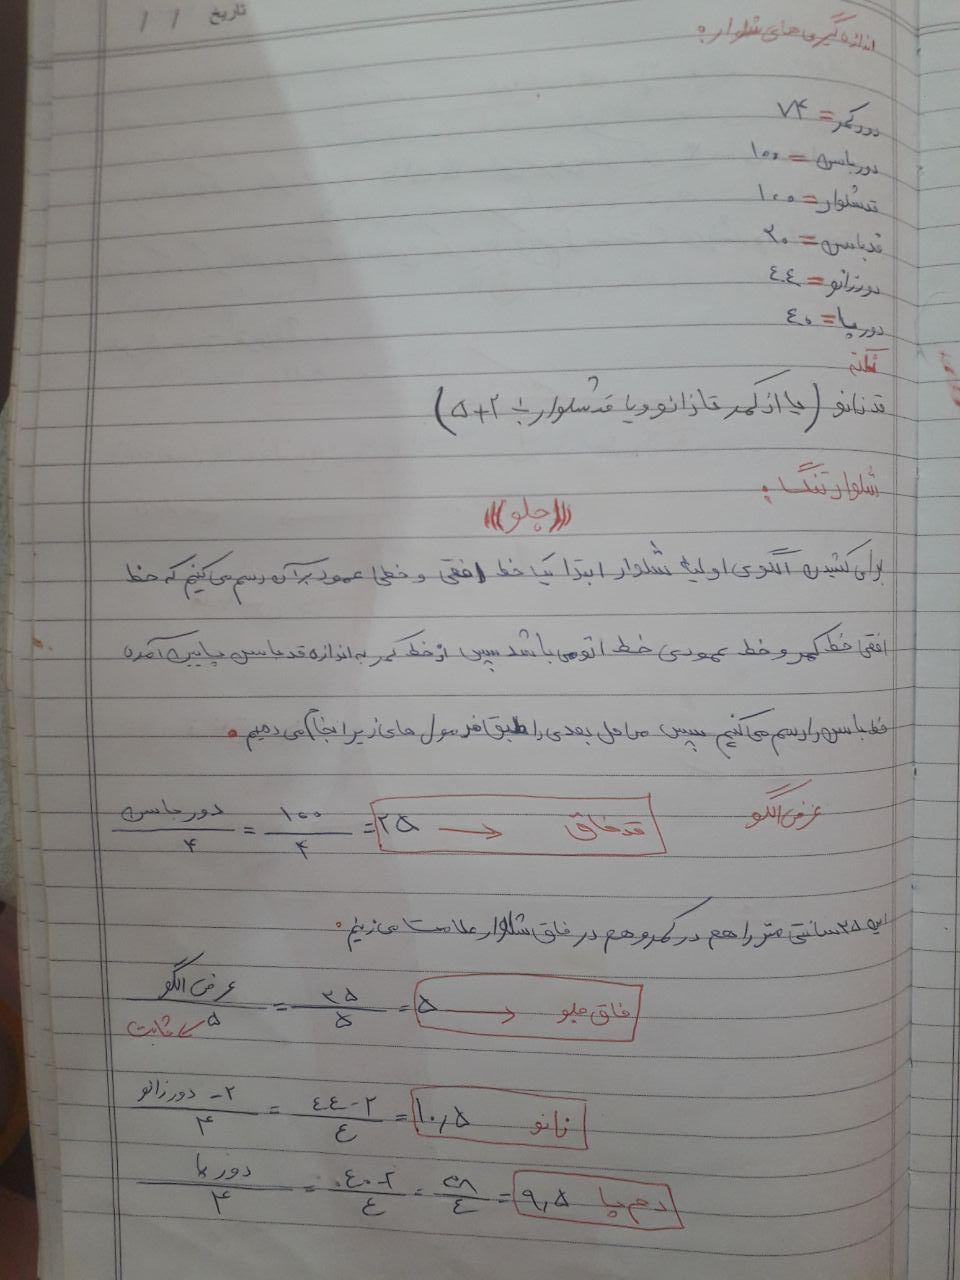 تاریخ / /
اندازه گیری های شلوار:
دور کمر = ۷۴
دور باسن = ۱۰۰
قد شلوار = ۱۰۰
قد باسن = ۲۰
دور زانو = ٤٤
دور پا = ٤۰
نکته
قد زانو (یا از کمر تا زانو و یا قد شلوار ÷ ۲ + ۵)
شلوار تنگ:
(((جلو)))
برای کشیدن الگوی اولیه شلوار ابتدا یک خط افقی و خطی عمود بر آن رسم می کنیم که خط
افقی خط کمر و خط عمودی خط اتو می باشد سپس از خط کمر به اندازه قد باسن پایین آمده
خط باسن را رسم می کنیم سپس مراحل بعدی را طبق فرمول های زیر انجام می دهیم.
عرض الگو
دور باسن / ۴ = ۱۰۰ / ۴ = ۲۵ → قد فاق
این ۲۵ سانتی متر را هم در کمر و هم در فاق شلوار علامت می زنیم.
عرض الگو / ۵ ثابت = ۲۵ / ۵ = ۵ → فاق جلو
دور زانو - ۲ / ۴ = ٤٤-۲ / ٤ = ۱۰٫۵ زانو
دور پا / ۴ = ٤۰-۲ / ٤ = ۳۸ / ٤ = ۹٫۵ دم پا